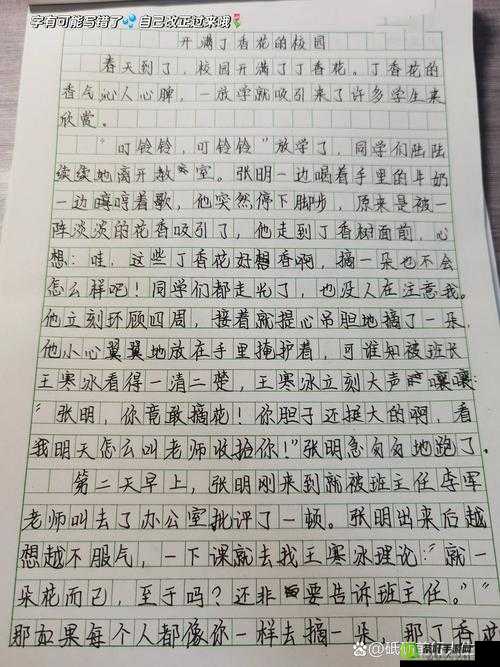 字有可能写错了💦自己改正过来哦🌷
开满丁香花的校园
春天到了，校园开满了丁香花。丁香花的
香气沁人心脾，一放学就吸引来了许多学生来
欣赏。
“叮铃铃，叮铃铃”放学了，同学们陆陆
续续地离开教室。张明一边喝着手里的牛奶
一边哼哼着歌，他突然停下脚步，原来是被一
阵淡淡的花香吸引了，他走到丁香树面前，心
想：哇，这些丁香花好想香啊，摘一朵也不会
怎么样吧！同学们都走光了，也没人在注意我。
他立刻环顾四周，接着就提心吊胆地摘了一朵，
他小心翼翼地放在手里掩护着，可谁知被班长
王寒冰看得一清二楚，王寒冰立刻大声嚷嚷：
“张明，你竟敢摘花！你胆子还挺大的啊，看
我明天怎么叫老师收拾你！”张明急匆匆地跑了。
第二天早上，张明刚来到就被班主任李军
老师叫去了办公室批评了一顿。张明出来后越
想越不服气，一下课就去找王寒冰理论：“就一
朵花而已，至于吗？还非要告诉班主任。”“
那如果每个人都像你一样去摘一朵，那丁香花